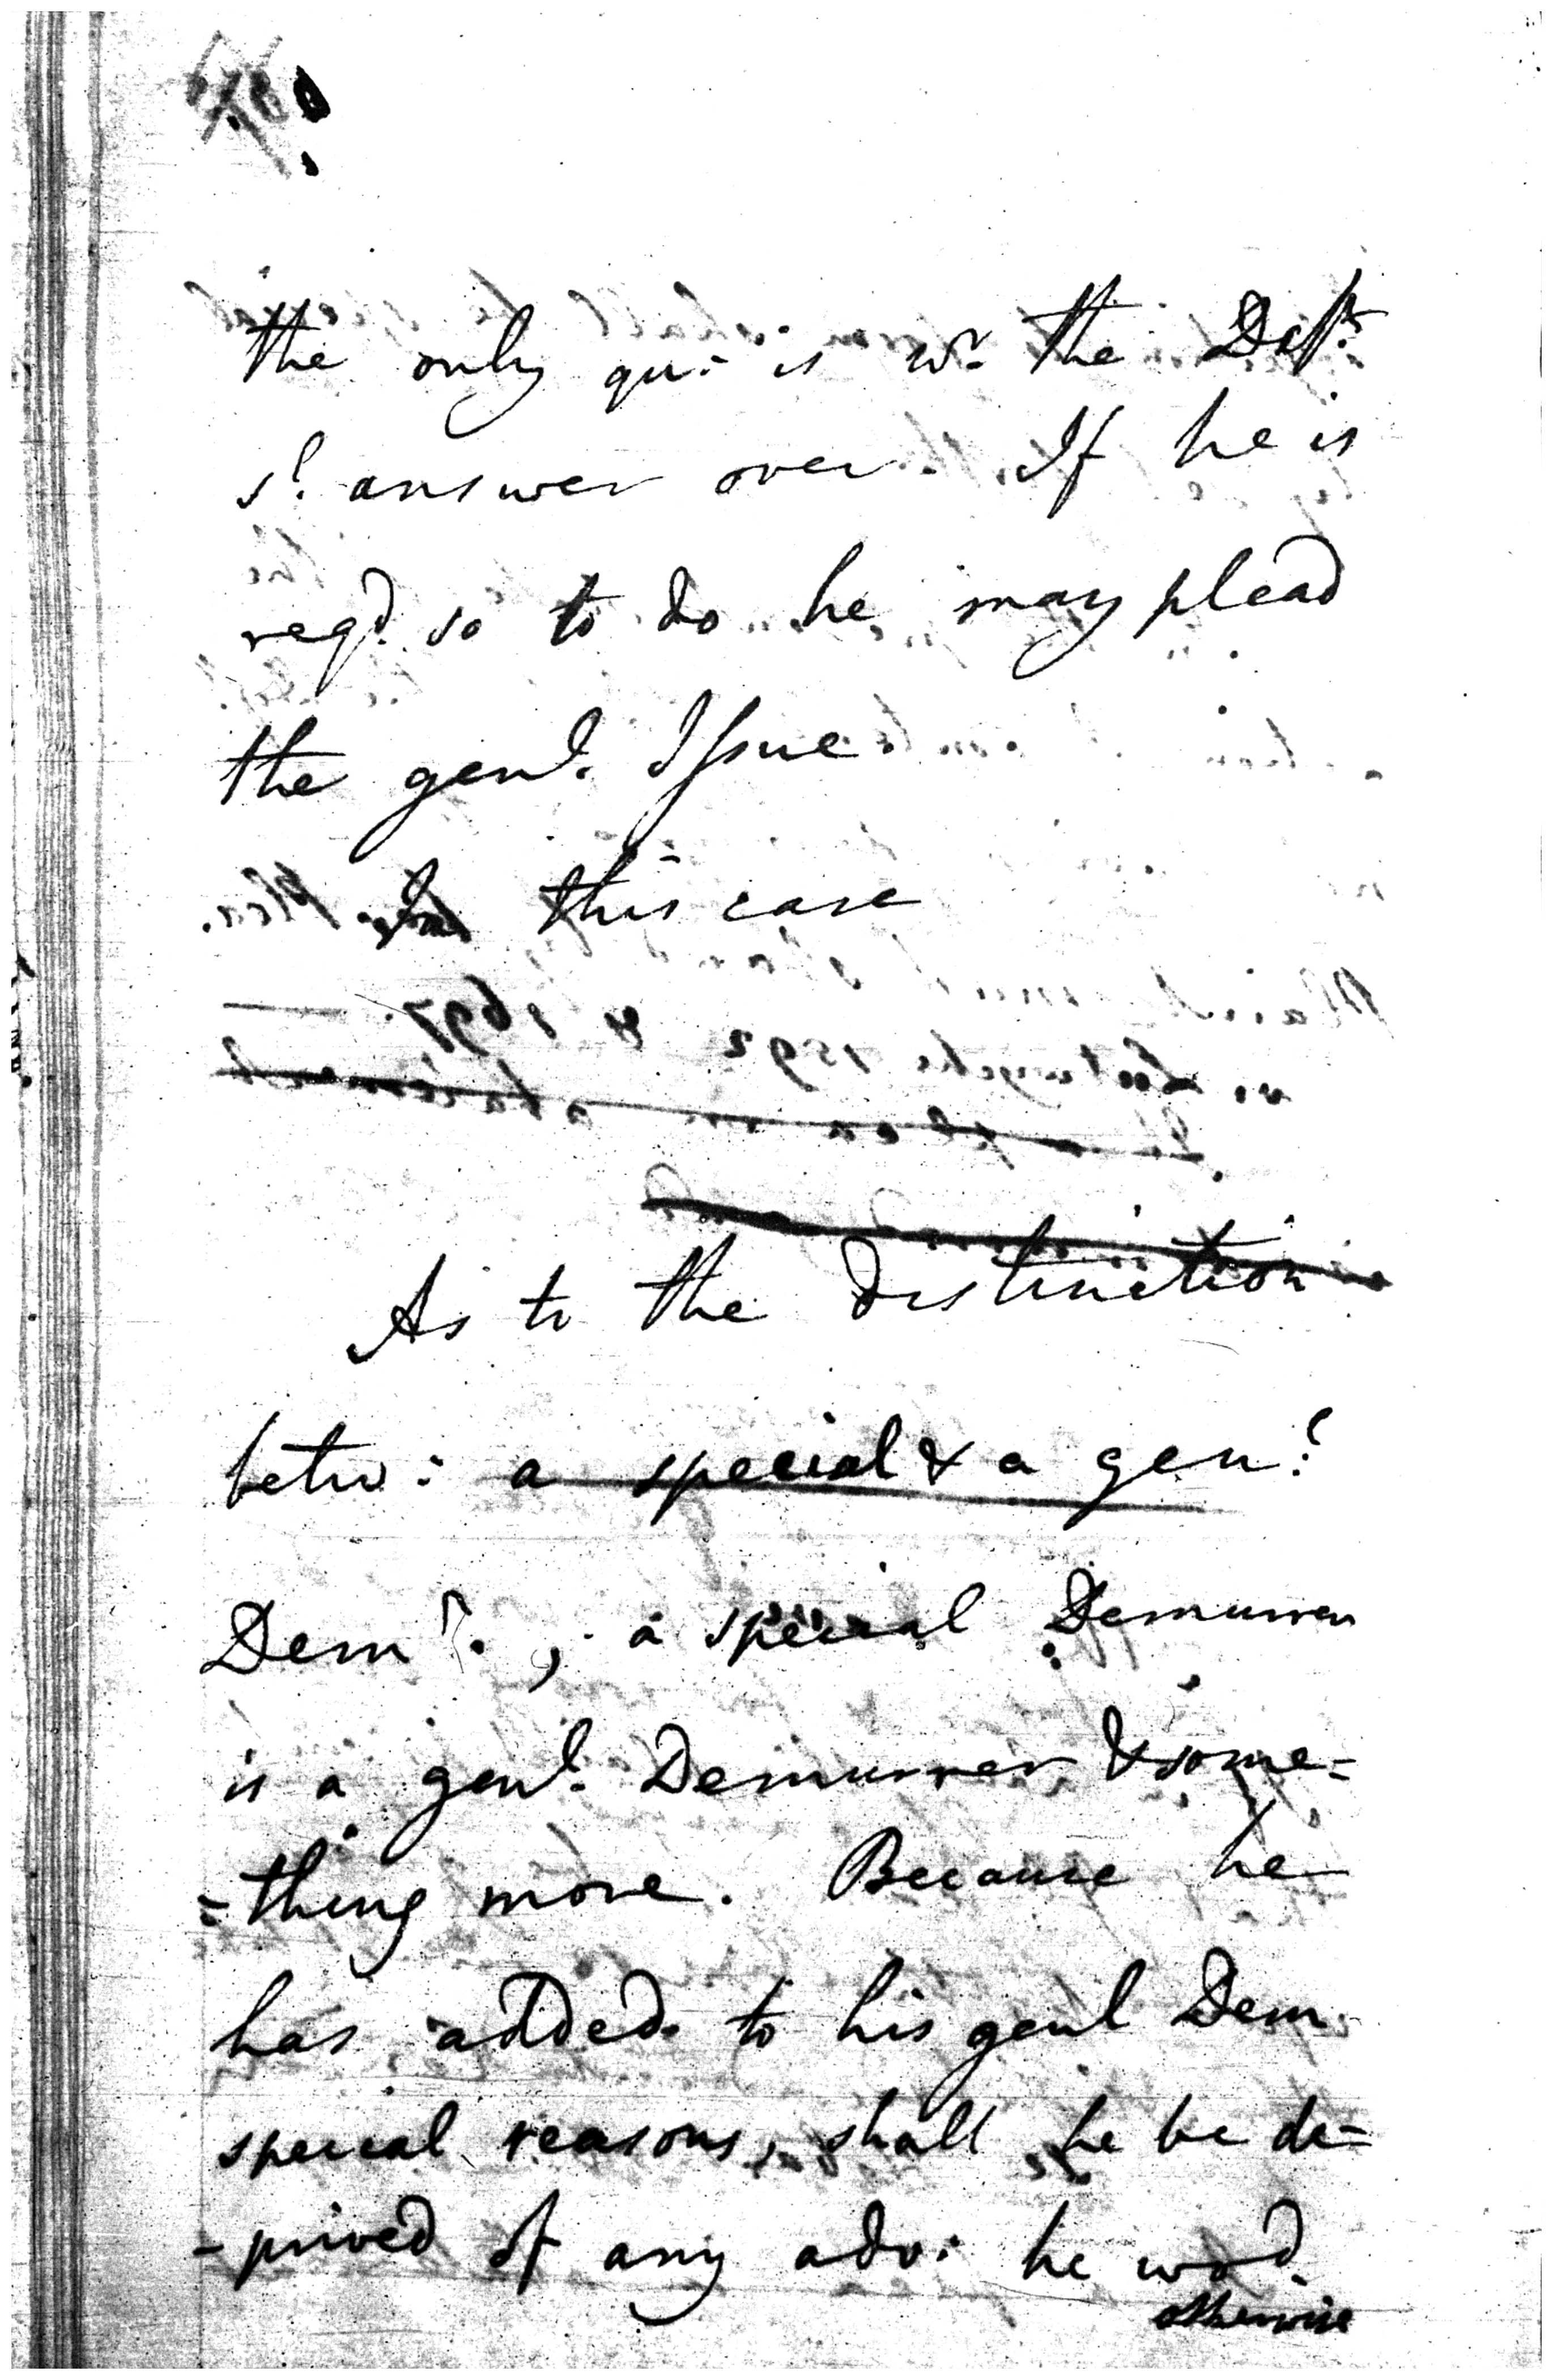 the only qu: is wr. the Deft.
sd. answer over. If he is
reqd. so to do he may plead
the genl. Issue
In this case
As to the distinction
betw: a special & a genl.
Demr., a special Demurrer
is a genl. Demurrer & some=
=thing more. Because he
has added to his genl Dem.
special reasons, shall he be de=
-prived of any adv: he wod.
otherwise